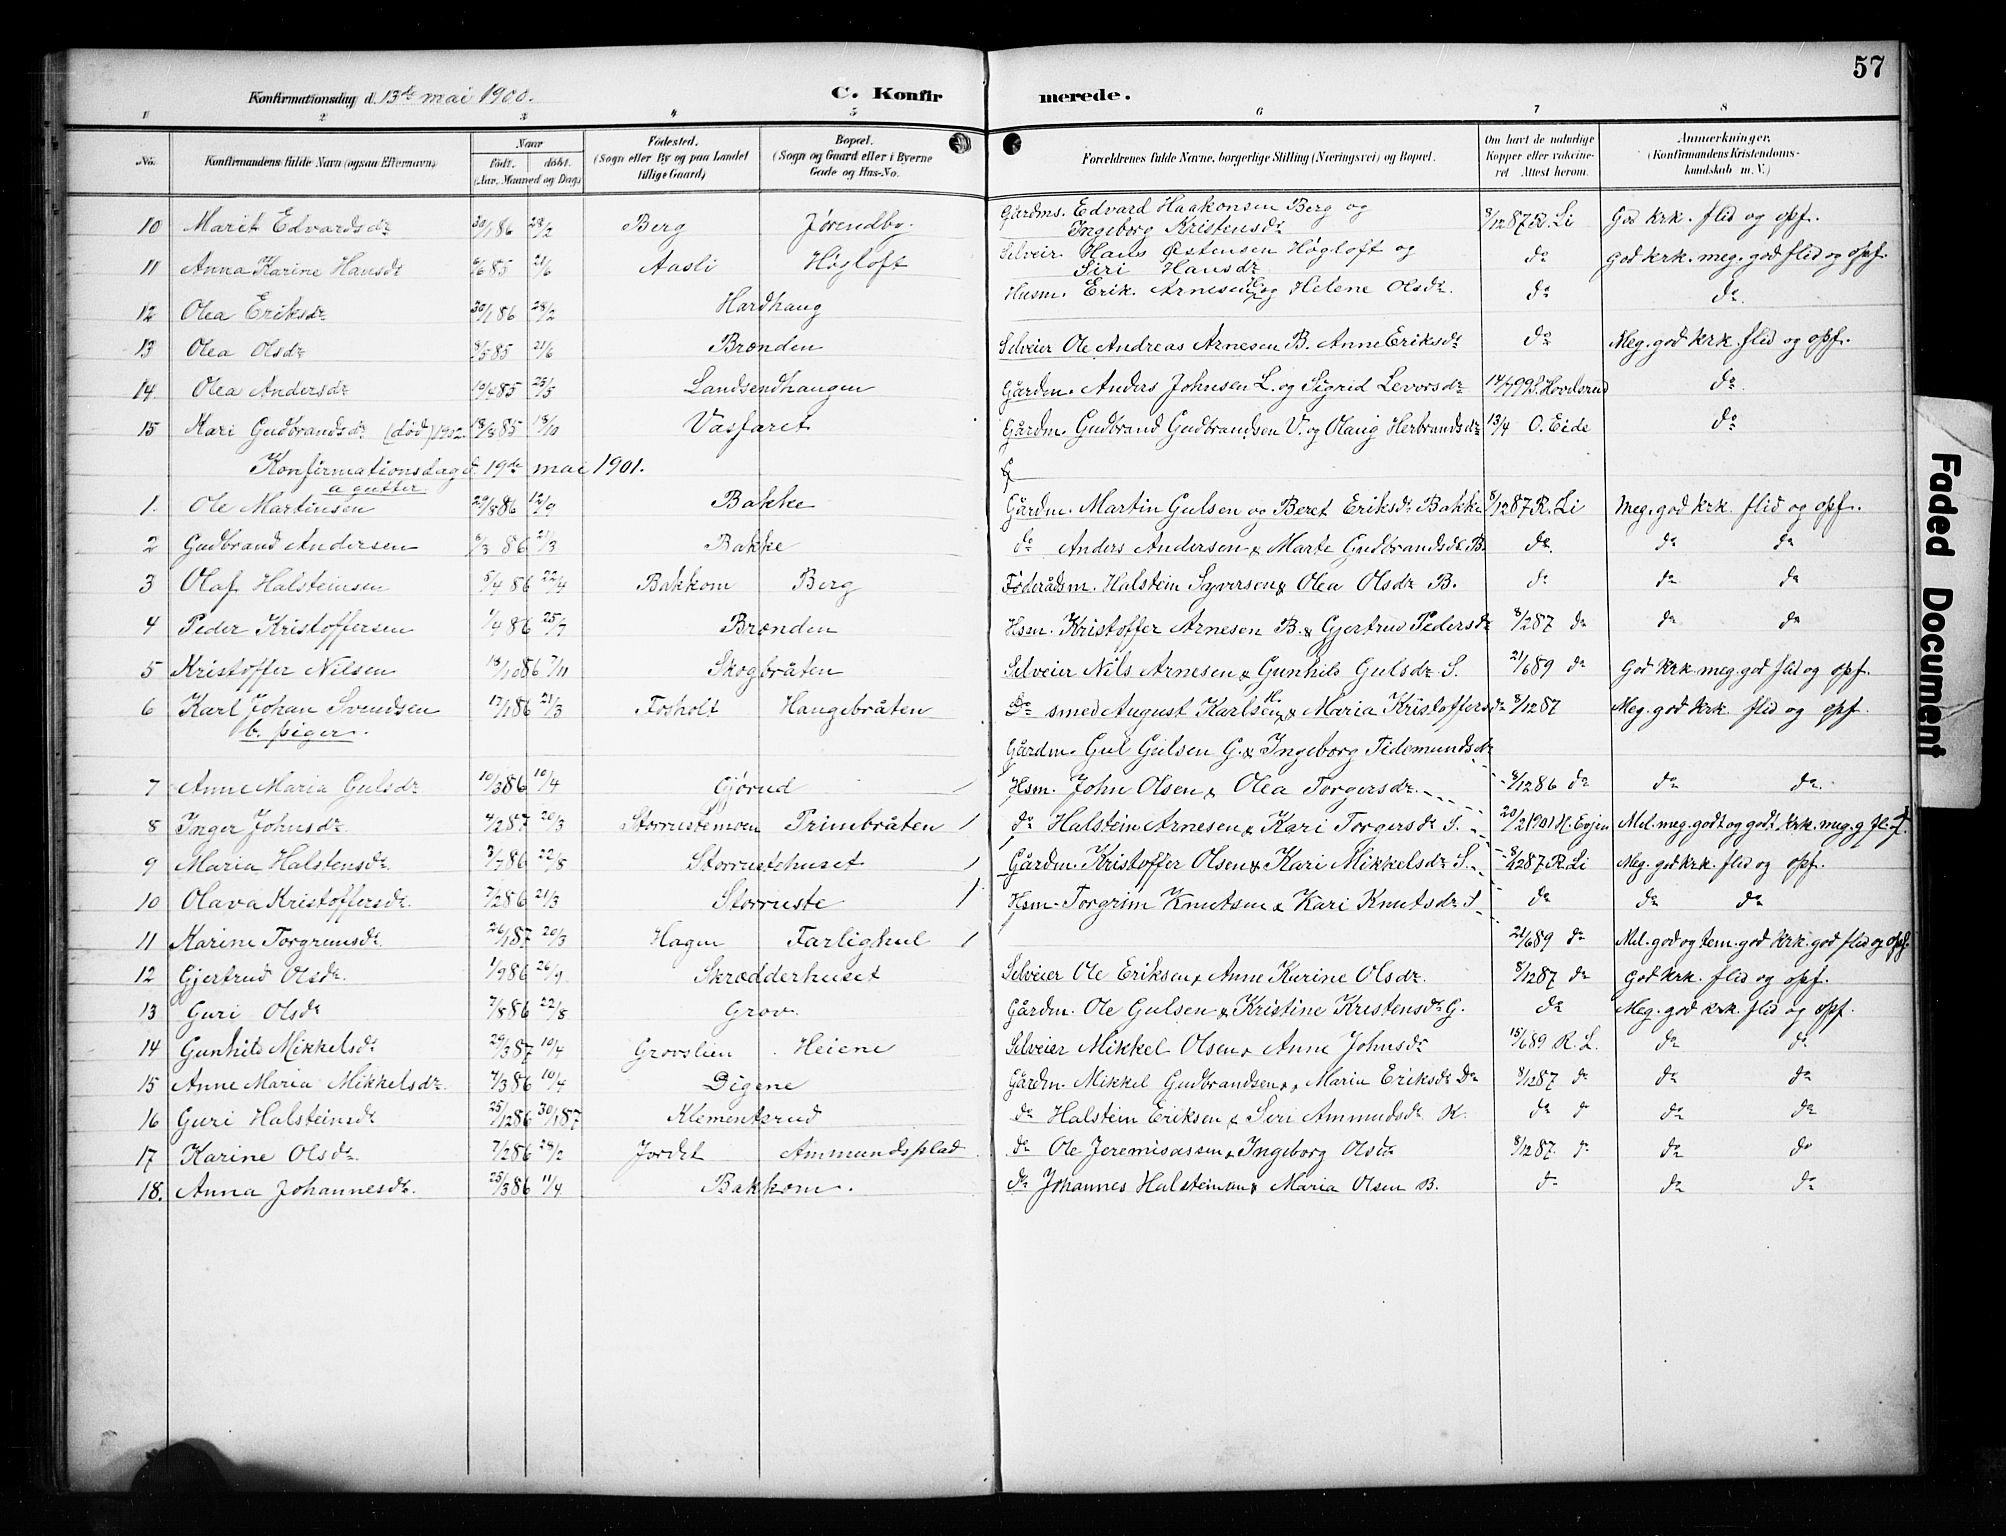 57
Konfirmationsdag d. 13de mai 1900.
C. Konfirmerede.
1 2 3 4 5 6 7 8
No.
Konfirmandens fulde Navn (ogsaa Efternavn).
Naar
Født. døbt.
(Aar, Maaned og Dag)
Fødested.
(Sogn eller By og paa Landet
tillige Gaard)
Bopæl.
(Sogn og Gaard eller i Byerne
Gade og Hus-No.
Forældrenes fulde Navne, borgerlige Stilling (Næringsvei) og Bopæl.
Om havt de naturlige
Kopper eller vakcine-
ret Attest herom.
Anmærkninger,
(Konfirmandens Kristendoms-
kundskab m. V.)
10 Marit Edvardsdr 30/1 86 28/2 Berg Jørendby. Gårdms. Edvard Haakonsen Berg og Ingeborg Kristensdr 8/12 87 R. Li God krk. flid og opf.
11 Anna Karine Hansdr 6/6 85 21/6 Aasli Høgloft Selveir. Hans Østensen Høgloft og Siri Hansdr do God krk. meg. god flid og opf.
12 Olea Eriksdr 30/1 86 28/2 Hardhaug Husm. Erik Arnesen H. og Helene Olsdr. do do.
13 Olea Olsdr 8/5 85 21/6 Brenden Selveier Ole Andreas Arnesen B. Anne Eriksdr do Meg. god krk. flid og opf.
14. Olea Andersdr 10/4 85 25/5 Landsendhaugen Gårdm. Anders Johnsen L. og Sigrid Levorsdr 14/4 99 S. Hovdsrud do.
15 Kari Gudbrandsdr (død) 1902. 18/8 85 18/10 Vasfaret Gårdm. Gudbrand Gudbrandsen V. og Olaug Herbrandsdr 13/4 O. Eide do
Konfirmationsdag d. 19de mai 1901.
a gutter
1. Ole Martinsen 29/8 86 12/9 Bakke Gårdm. Martin Gulsen og Beret Eriksdr Bakke 8/12 87 R. Li Meg. god krk. flid og opf.
2 Gudbrand Andersen 6/3 86 21/3 Bakke do Anders Andersen & Marte Gudbrandsdr B. do. do do
3 Olaf Halsteinsen 5/4 86 22/4 Bakkom Berg Føderådsm. Halstein Syversen & Olea Olsdr B. do do do
4 Peder Kristoffersen 1/4 86 25/7 Brenden Hsm. Kristoffer Arnesen B. & Gjertrud Pedersdr 8/12 87 do do do
5 Kristoffer Nilsen 18/10 86 7/11 Skogbråten Selveier Nils Arnesen & Gunhild Gulsdr S. 21/6 89 do God krk. meg. god flid og opf.
6 Karl Johan Svendsen 17/1 86 21/3 Fosholt Haugebråten Do smed August Karlsen H. & Maria Kristoffersdr 8/12 87 Meg. god krk. flid og opf.
b. piger.
Gårdm. Gul Gulsen G. & Ingeborg Tidemundsdr
7 Anne Maria Gulsdr 10/3 86 10/4 Gjørud Hsm. John Olsen & Olea Torgersdr. 8/12 86 do do do
8 Inger Johnsdr. 4/2 87 20/3 Storrustemoen Primbråten do Halstein Arnesen & Kari Torgersdr S. 20/2 1901 H. Evjen Mel. meg. godt og godt krk. meg. g fl. of.
9 Maria Halstensdr 3/7 86 22/8 Storrustehuset Gårdm. Kristoffer Olsen & Kari Mikkelsdr S. 8/12 87 R. Li Meg. god krk. flid og opf.
10 Olava Kristoffersdr. 7/2 86 21/3 Storruste Hsm. Torgrim Knutsen & Kari Knutsdr S do do do
11 Karine Torgrimsdr 26/1 87 20/3 Hagen Farlighul 21/6 89 do Mel. god og tem. god krk. god flid og opf.
12 Gjertrud Olsdr. 1/9 86 26/9 Skrædderhuset Selveier Ole Eriksen & Anne Karine Olsdr. 8/12 87 do God krk. flid og opf.
13 Guri Olsdr 7/8 86 22/8 Grov. Gårdm. Ole Gulsen & Kristine Kristensdr G. do Meg. god krk. flid og opf.
14 Gunhild Mikkelsdr 29/3 87 10/4 Grovslien Heiene Selveier Mikkel Olsen & Anne Johnsdr 15/6 89 R. L. do do
15 Anne Maria Mikkelsdr. 4/3 86 10/4 Digene Gårdm. Mikkel Gudbrandsen & Maria Eriksdr Do 8/12 87 do do do
16 Guri Halsteinsdr 25/12 86 30/1 87 Klementsrud do Halstein Eriksen & Siri Ammundsdr K. do do do do
17 Karine Olsdr. 7/2 86 28/2 Jordet Ammundsplad do Ole Jeremiassen & Ingeborg Olsdr 8/12 87. do do do
18. Anna Johannesdr. 25/3 86 11/4 Bakkom. do Johannes Halsteinsen & Maria Olsen B. do do do
Faded Document